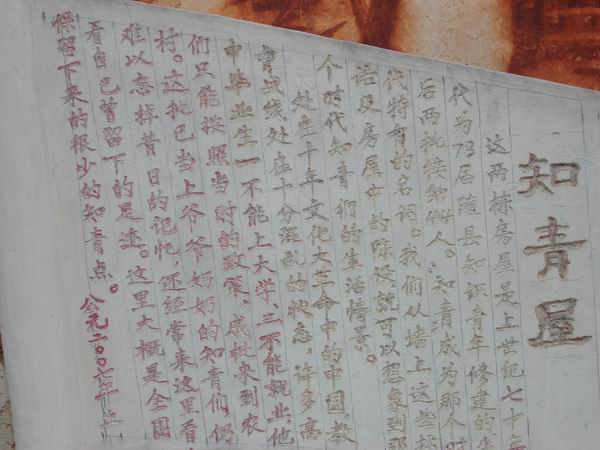 知青屋
这两栋房屋是上世纪七十年
代为73届随县知识青年修建的
后两批接第44人。知青成为那个时
代特有的名词。我们从墙上这些标
语及房屋中的陈设就可以想象到那
个时代知青们的生活情景。
处在十年文化大革命中的中国,教
育战线处在十分混乱的状态,许多高
中毕业生一不能上大学,二不能就业,他
们只能按照当时的政策,成批来到农
村。这批已当上爷爷奶奶的知青们,仍
难以忘掉昔日的记忆,还经常来这里看
看自己曾留下的足迹。这里大概是全国
保留下来的很少的知青点。公元二00七年